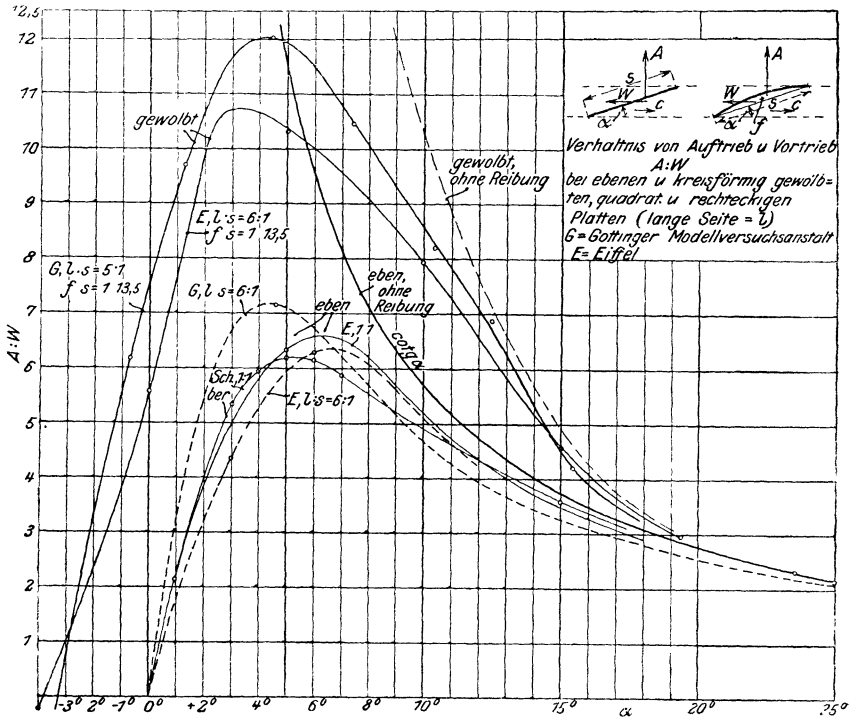 12,5
12
11
10
9
8
7
6
5
4
3
2
1
A:W
-3° 2° -1° 0° +2° 4° 6° 8° 10° 15° α 20° 25°
gewölbt
E, l·s=6:1
f s=1 13,5
G, l·s=5·1,
f s=1 13,5
G, l s=6:1
eben
E, 1:1
Sch, 1:1
ber
E, l·s=6:1
eben,
ohne
Reibung
cotg α
gewolbt,
ohne Reibung
A
S
W
c
α
A
W
S
c
α
f
Verhaltnis von Auftrieb u Vortrieb
A:W
bei ebenen u kreisförmig gewölb=
ten, quadrat u rechteckigen
Platten (lange Seite = l)
G=Gottinger Modellversuchsanstalt
E= Eiffel